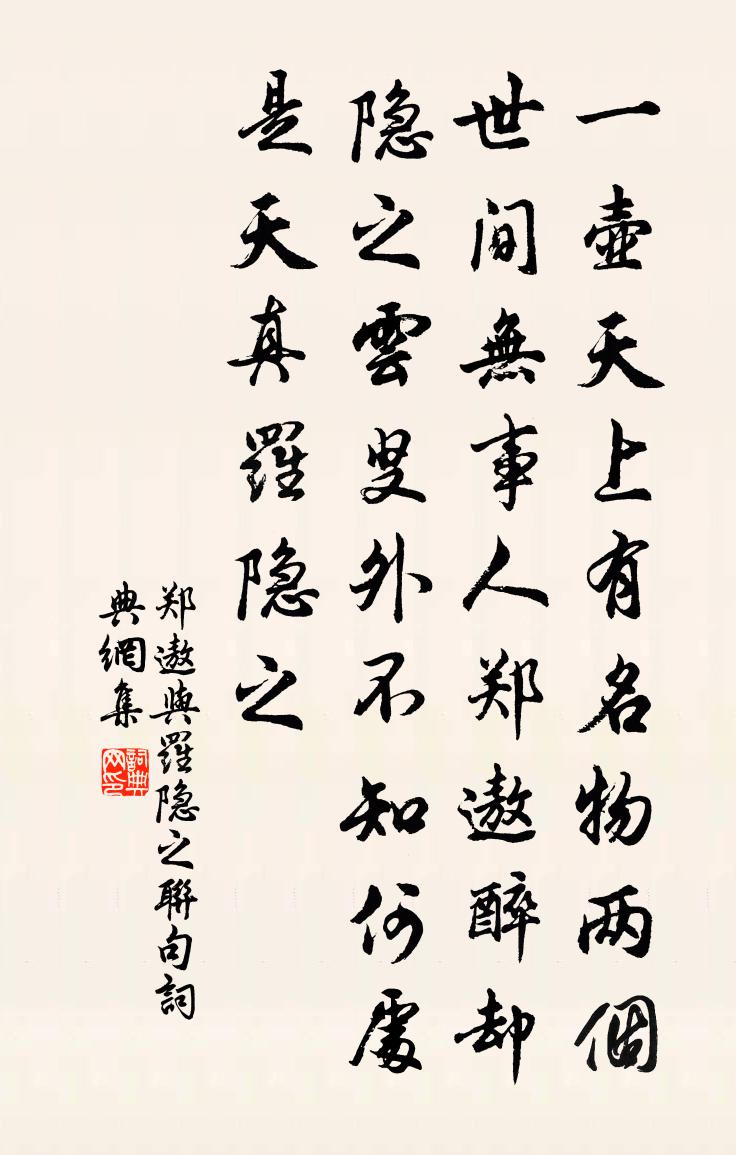 一壺天上有名物两個
世間無事人郑遨醉却
隐之雲叟外不知何處
是天真羅隐之
郑遨與羅隐之聯句詞
典網集
詞典
网印